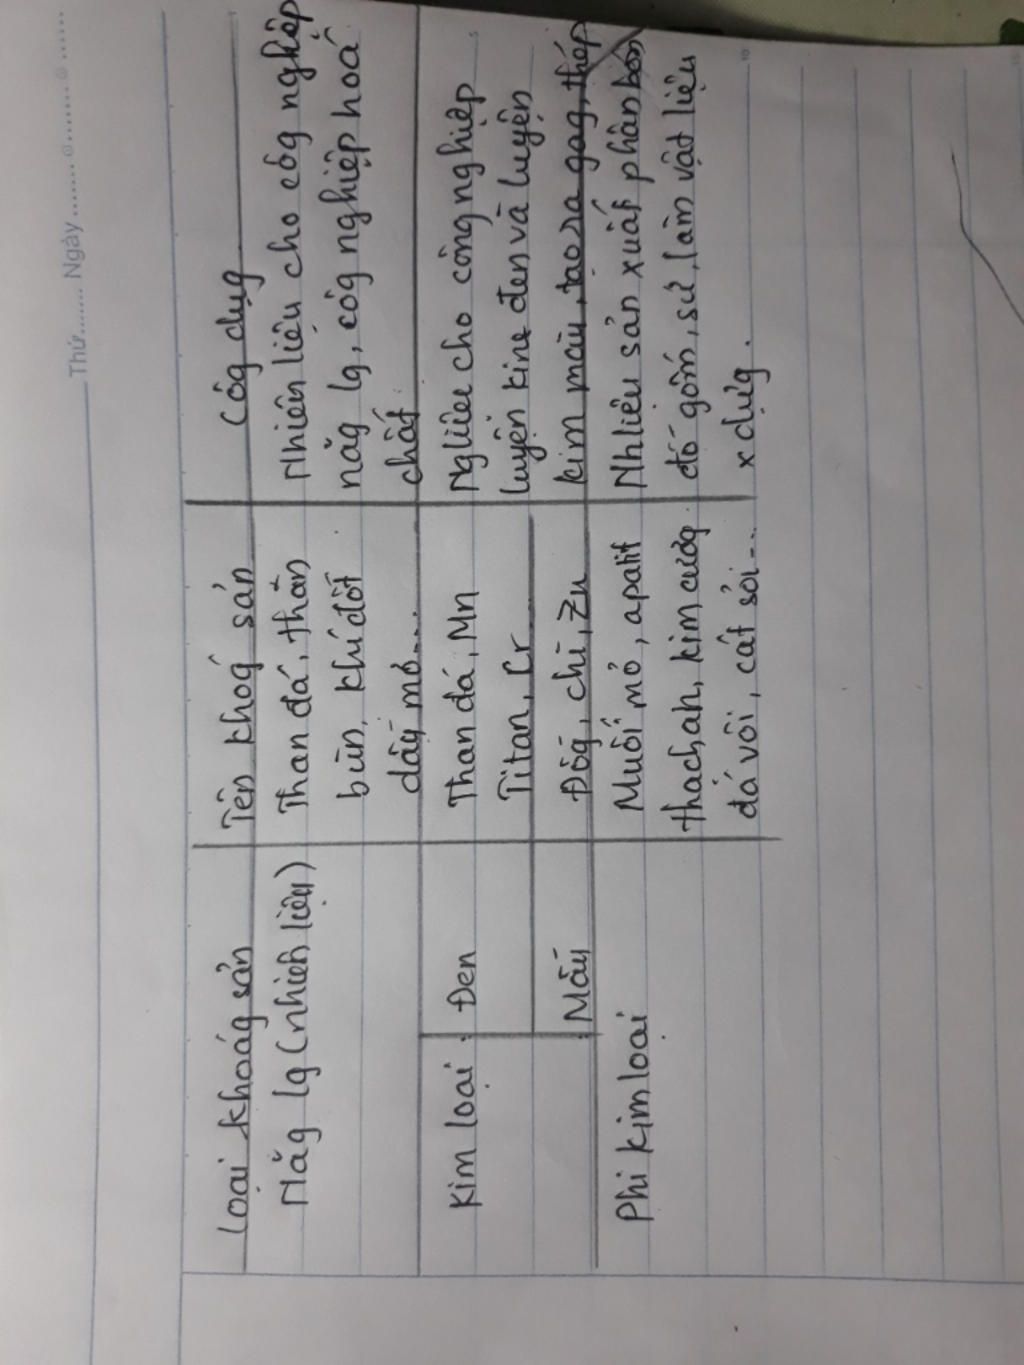 Thứ....... Ngày ....... ☺ ....... ☺ ......
Loại khoág sản Tên khoág sản Côg dụg
Năg lg (nhiên liệu) Than đá, than Nhiên liệu cho côg nghiệp
bùn, khí đốt năg lg, côg nghiệp hoá
dầu mỏ... chất
Kim loại : Đen Than đá, Mn Ngliêu cho công nghiệp
Titan, Cr luyện kim đen và luyện
: Mầu Đồg, chì, Zn kim màu, tạo ra gag, thép
Phi kim loại Muối mỏ, apatit Nhliệu sản xuất phân bón
thachah, kim cươg đồ gốm, sứ, làm vật liệu
đá vôi, cát sỏi... x dựg.